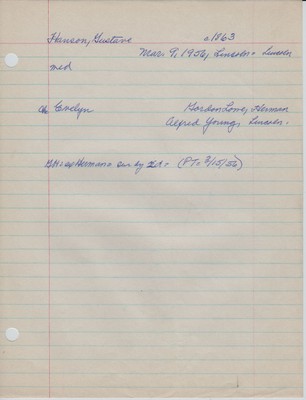 Hanson, Gustave c1863
Mar. 9, 1956, Lincoln - Lincoln
med
ch Evelyn Gordon Lowe, Herman
Alfred Young, Lincoln.
Herman sur by (PT- 3/15/56)